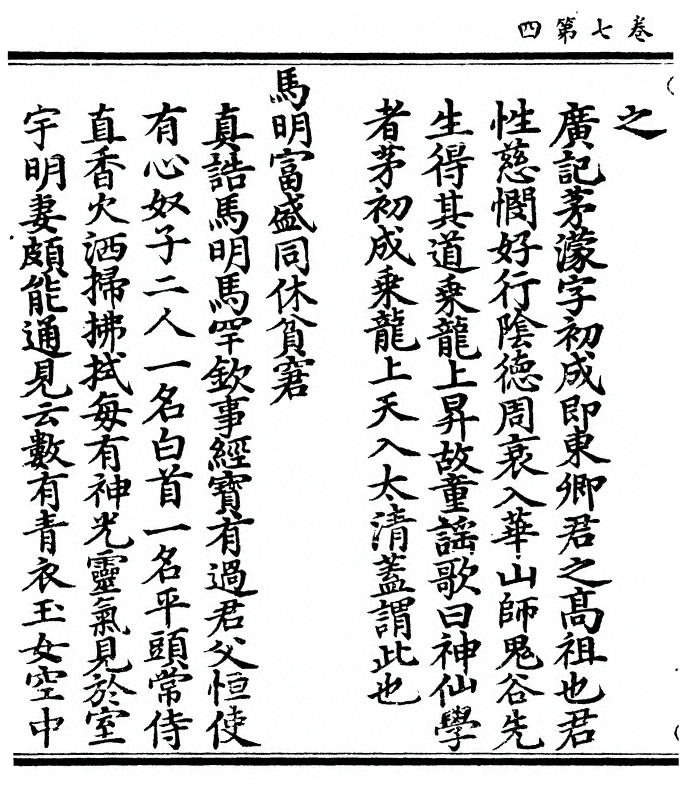 卷七第四
之
廣記茅濛字初成即東卿君之高祖也君
性慈憫好行陰德周衰入華山師鬼谷先
生得其道乘龍上昇故童謠歌曰神仙學
者茅初成乘龍上天入太清蓋謂此也
馬明富盛同休貧窘
真誥馬明馬罕欽事經寶有過君父恒使
有心奴子二人一名白首一名平頭常侍
直香火洒掃拂拭每有神光靈氣見於室
宇明妻頗能通見云數有青衣玉女空中